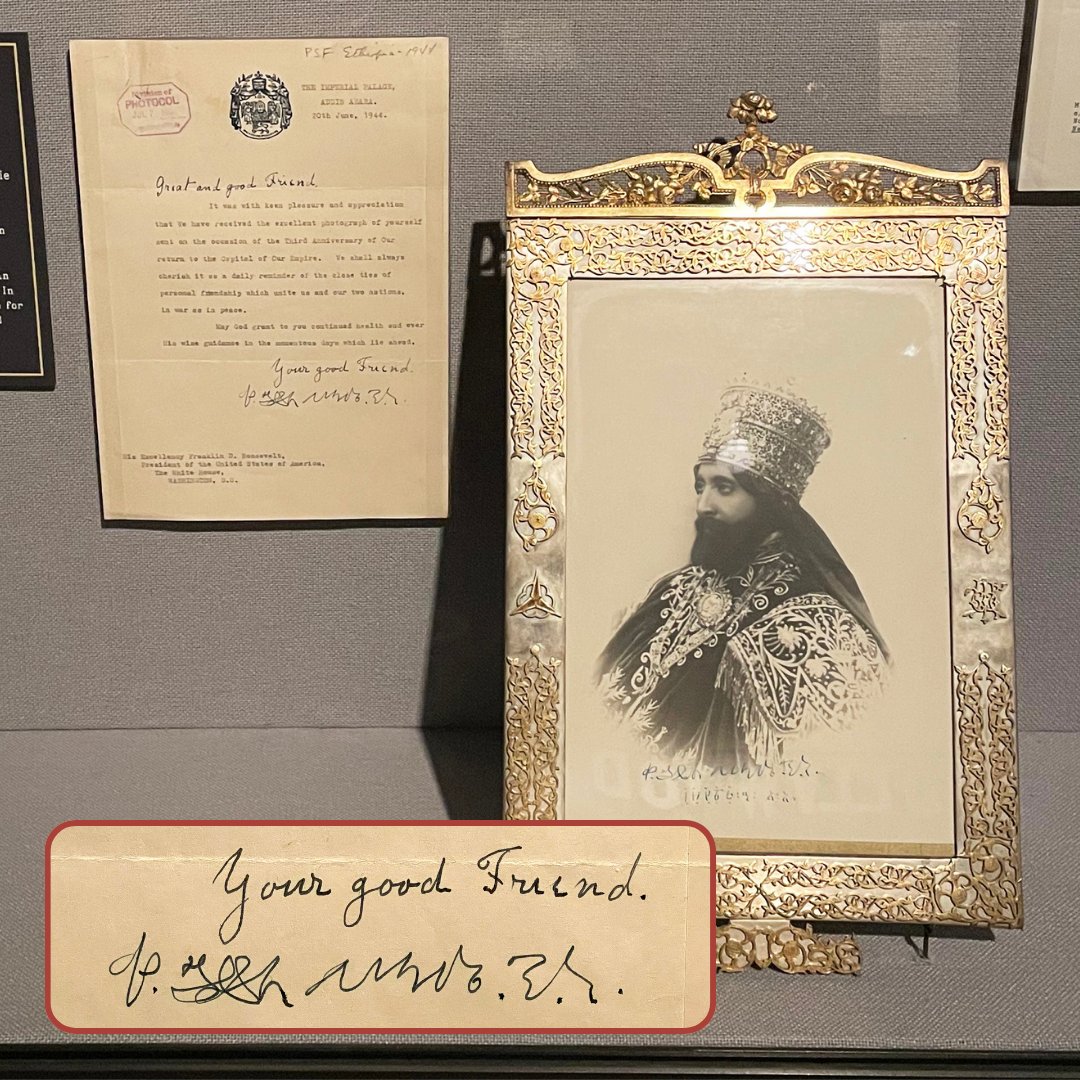 PSF Ethiopia-1944
Division of
PROTOCOL
THE IMPERIAL PALACE,
ADDIS ABABA.
20th June, 1944.
Great and good Friend,
It was with keen pleasure and appreciation
that We have received the excellent photograph of yourself
sent on the occasion of the Third Anniversary of Our
return to the Capital of Our Empire. We shall always
cherish it as a daily reminder of the close ties of
personal friendship which unite us and our two nations,
in war as in peace.
May God grant to you continued health and ever
His wise guidance in the momentous days which lie ahead.
Your good Friend.
His Excellency Franklin D. Roosevelt,
President of the United States of America,
The White House,
WASHINGTON, D.C.
Your good Friend.